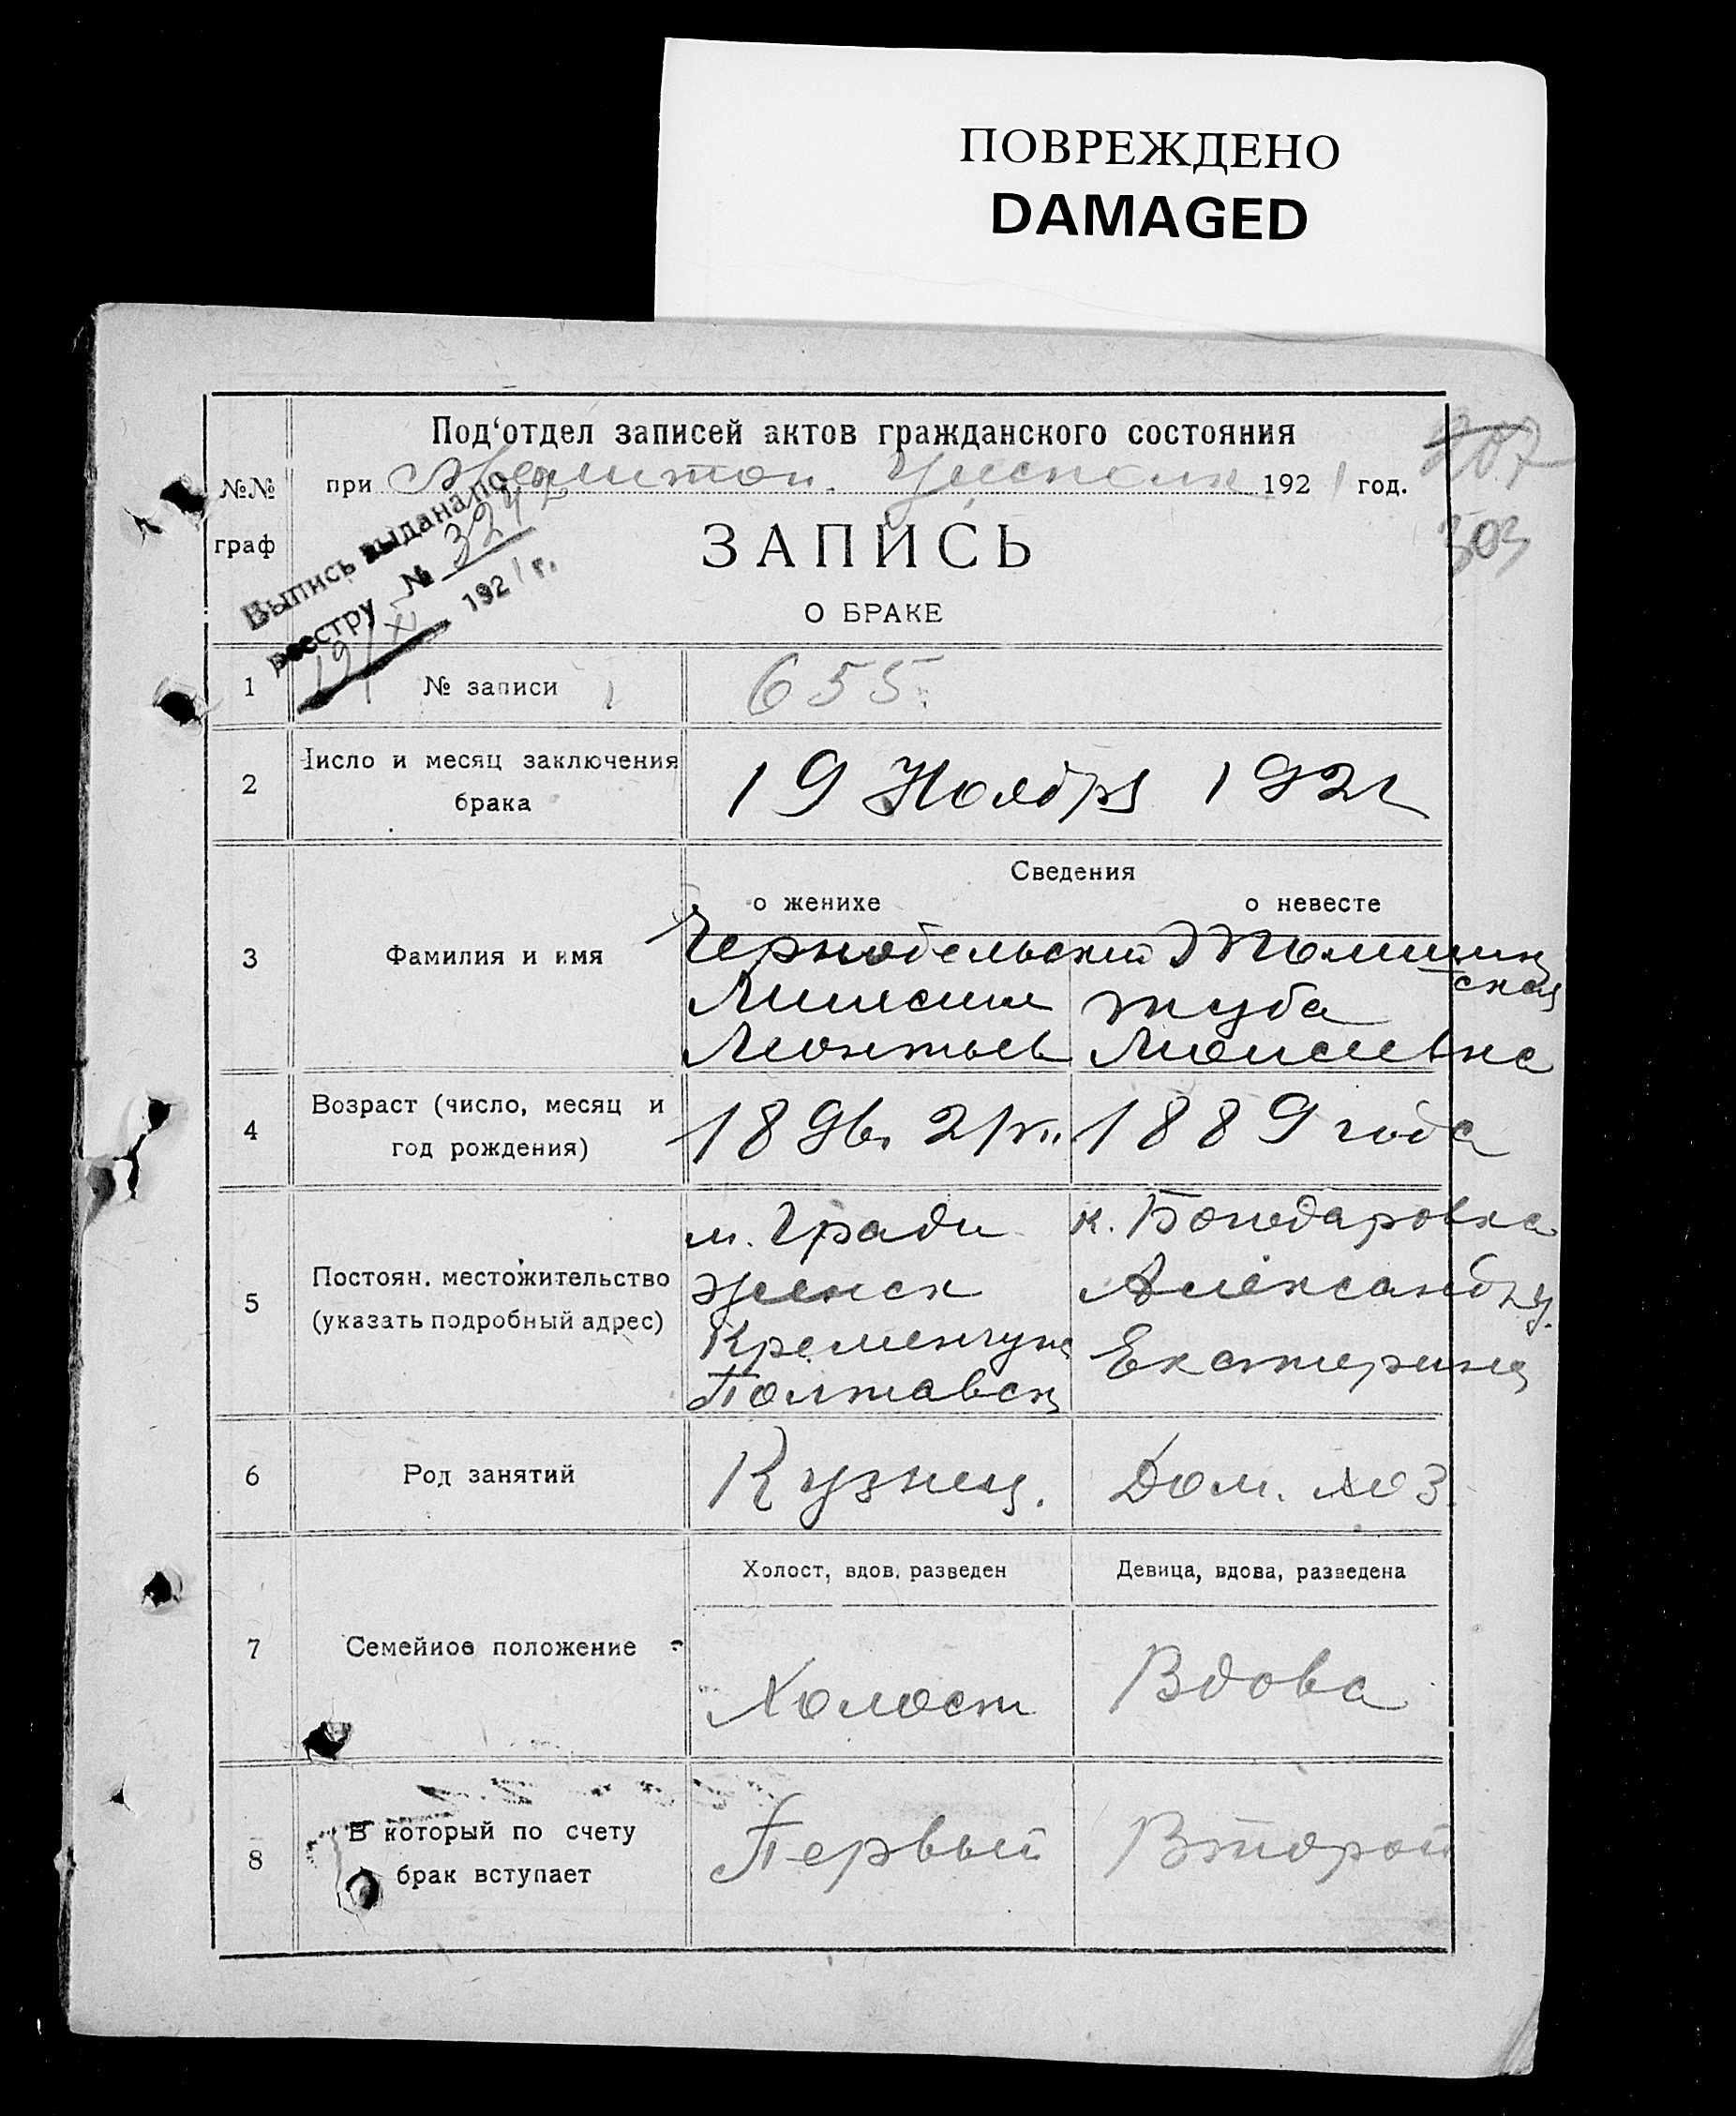 ПОВРЕЖДЕНО
DAMAGED
Под‘отдел записей актов гражданского состояния
№№ граф
при Мелитоп. Уисполк 1921 год.
207
303
ЗАПИСЬ
О БРАКЕ
Выпись выдана по
реестру № 3242
19/XI 1921 г.
1 № записи 655.
2 Число и месяц заключения брака 19 Ноября 1921
Сведения
о женихе о невесте
3 Фамилия и имя
Чернобельский Томшин
ская
Леонтьев Моисеевна
4 Возраст (число, месяц и
год рождения)
1889 года
5 Постоян. местожительство
(указать подробный адрес)
м. Гради к. Бондаровка
женск Александр у.
Кременчуг Екатерин
Полтавск
6 Род занятий Кузнец. Дом. хоз.
Холост, вдов, разведен Девица, вдова, разведена
7 Семейное положение Холост Вдова
8 В который по счету
брак вступает
Первый Второй